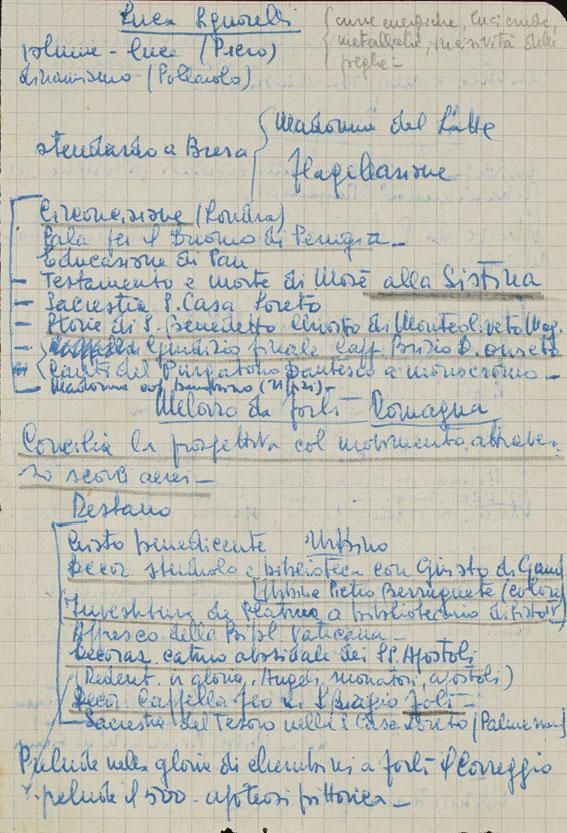 Luca Signorelli
{ curve energiche, luci crude,
metalliche, incisività delle
pieghe -
volume - luce (Piero)
dinamismo (Pollaiolo)
stendardo a Brera { Madonna del Latte
flagellazione
Circoncisione (Londra)
Pala per il Duomo di Perugia -
Educazione di Pan
- Testamento e morte di Mosè alla Sistina
- Sacrestia S. Casa Loreto
- Storie di S. Benedetto Chiostro di Monteoliveto Mag.
- Giudizio finale Capp. Brizio D. Orvieto
Canti del Purgatorio Dantesco a monocromo -
Madonna col bambino (Uffizi) -
Melozzo da Forlì Romagna
Concilia la prospettiva col movimento attraver-
so scorci aerei -
Restano
Cristo benedicente Urbino
Decor. studiolo e biblioteca con Giusto di Gand
Urbino Pietro Berruguete (colore)
Investitura di Platina a bibliotecario di Sisto IV
Affresco della Bibl. Vaticana -
Decoraz. catino absidale dei SS. Apostoli
(Redent. in gloria, Angeli musicatori, apostoli)
Decor. Cappella Feo di S. Biagio Forlì -
- Sacrestia del Tesoro nella S. Casa Loreto (Palmezzano)
Prelude nella gloria di cherubini a Forlì il Correggio
prelude il 500 - apoteosi pittorica -